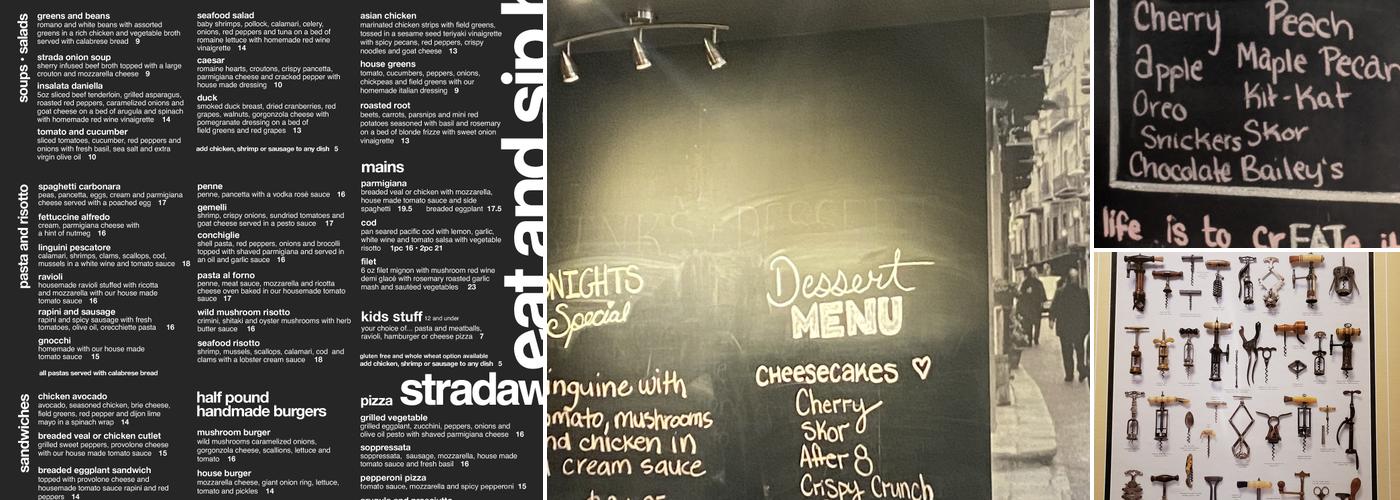 soups • salads
greens and beans
romano and white beans with assorted
greens in a rich chicken and vegetable broth
served with calabrese bread 9
strada onion soup
sherry infused beef broth topped with a large
crouton and mozzarella cheese 9
insalata daniella
5oz sliced beef tenderloin, grilled asparagus,
roasted red peppers, caramelized onions and
goat cheese on a bed of arugula and spinach
with homemade red wine vinaigrette 14
tomato and cucumber
sliced tomatoes, cucumber, red peppers and
onions with fresh basil, sea salt and extra
virgin olive oil 10
seafood salad
baby shrimps, pollock, calamari, celery,
onions, red peppers and tuna on a bed of
romaine lettuce with homemade red wine
vinaigrette 14
caesar
romaine hearts, croutons, crispy pancetta,
parmigiana cheese and cracked pepper with
house made dressing 10
duck
smoked duck breast, dried cranberries, red
grapes, walnuts, gorgonzola cheese with
pomegranate dressing on a bed of
field greens and red grapes 13
add chicken, shrimp or sausage to any dish 5
asian chicken
marinated chicken strips with field greens,
tossed in a sesame seed teriyaki vinaigrette
with spicy pecans, red peppers, crispy
noodles and goat cheese 13
house greens
tomato, cucumbers, peppers, onions,
chickpeas and field greens with our
homemade italian dressing 9
roasted root
beets, carrots, parsnips and mini red
potatoes seasoned with basil and rosemary
on a bed of blonde frizze with sweet onion
vinaigrette 13
pasta and risotto
spaghetti carbonara
peas, pancetta, eggs, cream and parmigiana
cheese served with a poached egg 17
fettuccine alfredo
cream, parmigiana cheese with
a hint of nutmeg 16
linguini pescatore
calamari, shrimps, clams, scallops, cod,
mussels in a white wine and tomato sauce 18
ravioli
housemade ravioli stuffed with ricotta
and mozzarella with our house made
tomato sauce 16
rapini and sausage
rapini and spicy sausage with fresh
tomatoes, olive oil, orecchiette pasta 16
gnocchi
homemade with our house made
tomato sauce 15
all pastas served with calabrese bread
penne
penne, pancetta with a vodka rosé sauce 16
gemelli
shrimp, crispy onions, sundried tomatoes and
goat cheese served in a pesto sauce 17
conchiglie
shell pasta, red peppers, onions and brocolli
topped with shaved parmigiana and served in
an oil and garlic sauce 16
pasta al forno
penne, meat sauce, mozzarella and ricotta
cheese oven baked in our housemade tomato
sauce 17
wild mushroom risotto
crimini, shitaki and oyster mushrooms with herb
butter sauce 16
seafood risotto
shrimp, mussels, scallops, calamari, cod and
clams with a lobster cream sauce 18
mains
parmigiana
breaded veal or chicken with mozzarella,
house made tomato sauce and side
spaghetti 19.5 breaded eggplant 17.5
cod
pan seared pacific cod with lemon, garlic,
white wine and tomato salsa with vegetable
risotto 1pc 16 • 2pc 21
filet
6 oz filet mignon with mushroom red wine
demi glacé with rosemary roasted garlic
mash and sautéed vegetables 23
kids stuff 12 and under
your choice of... pasta and meatballs,
ravioli, hamburger or cheese pizza 7
gluten free and whole wheat option available
add chicken, shrimp or sausage to any dish 5
eat and sip
stradaw
sandwiches
chicken avocado
avocado, seasoned chicken, brie cheese,
field greens, red pepper and dijon lime
mayo in a spinach wrap 14
breaded veal or chicken cutlet
grilled sweet peppers, provolone cheese
with our house made tomato sauce 15
breaded eggplant sandwich
topped with provolone cheese and
housemade tomato sauce rapini and red
peppers 14
half pound
handmade burgers
mushroom burger
wild mushrooms caramelized onions,
gorgonzola cheese, scallions, lettuce and
tomato 16
house burger
mozzarella cheese, giant onion ring, lettuce,
tomato and pickles 14
pizza
grilled vegetable
grilled eggplant, zucchini, peppers, onions and
olive oil pesto with shaved parmigiana cheese 16
soppressata
soppressata, sausage, mozzarella, house made
tomato sauce and fresh basil 16
pepperoni pizza
tomato sauce, mozzarella and spicy pepperoni 15
NIGHTS
Special
inguine with
omato, mushrooms
nd chicken in
cream sauce
Dessert
MENU
CHEESECAKES ♡
Cherry
Skor
After 8
Crispy Crunch
Cherry Peach
apple Maple Pecan
Oreo Kit-Kat
Snickers Skor
Chocolate Bailey's
life is to crEATe